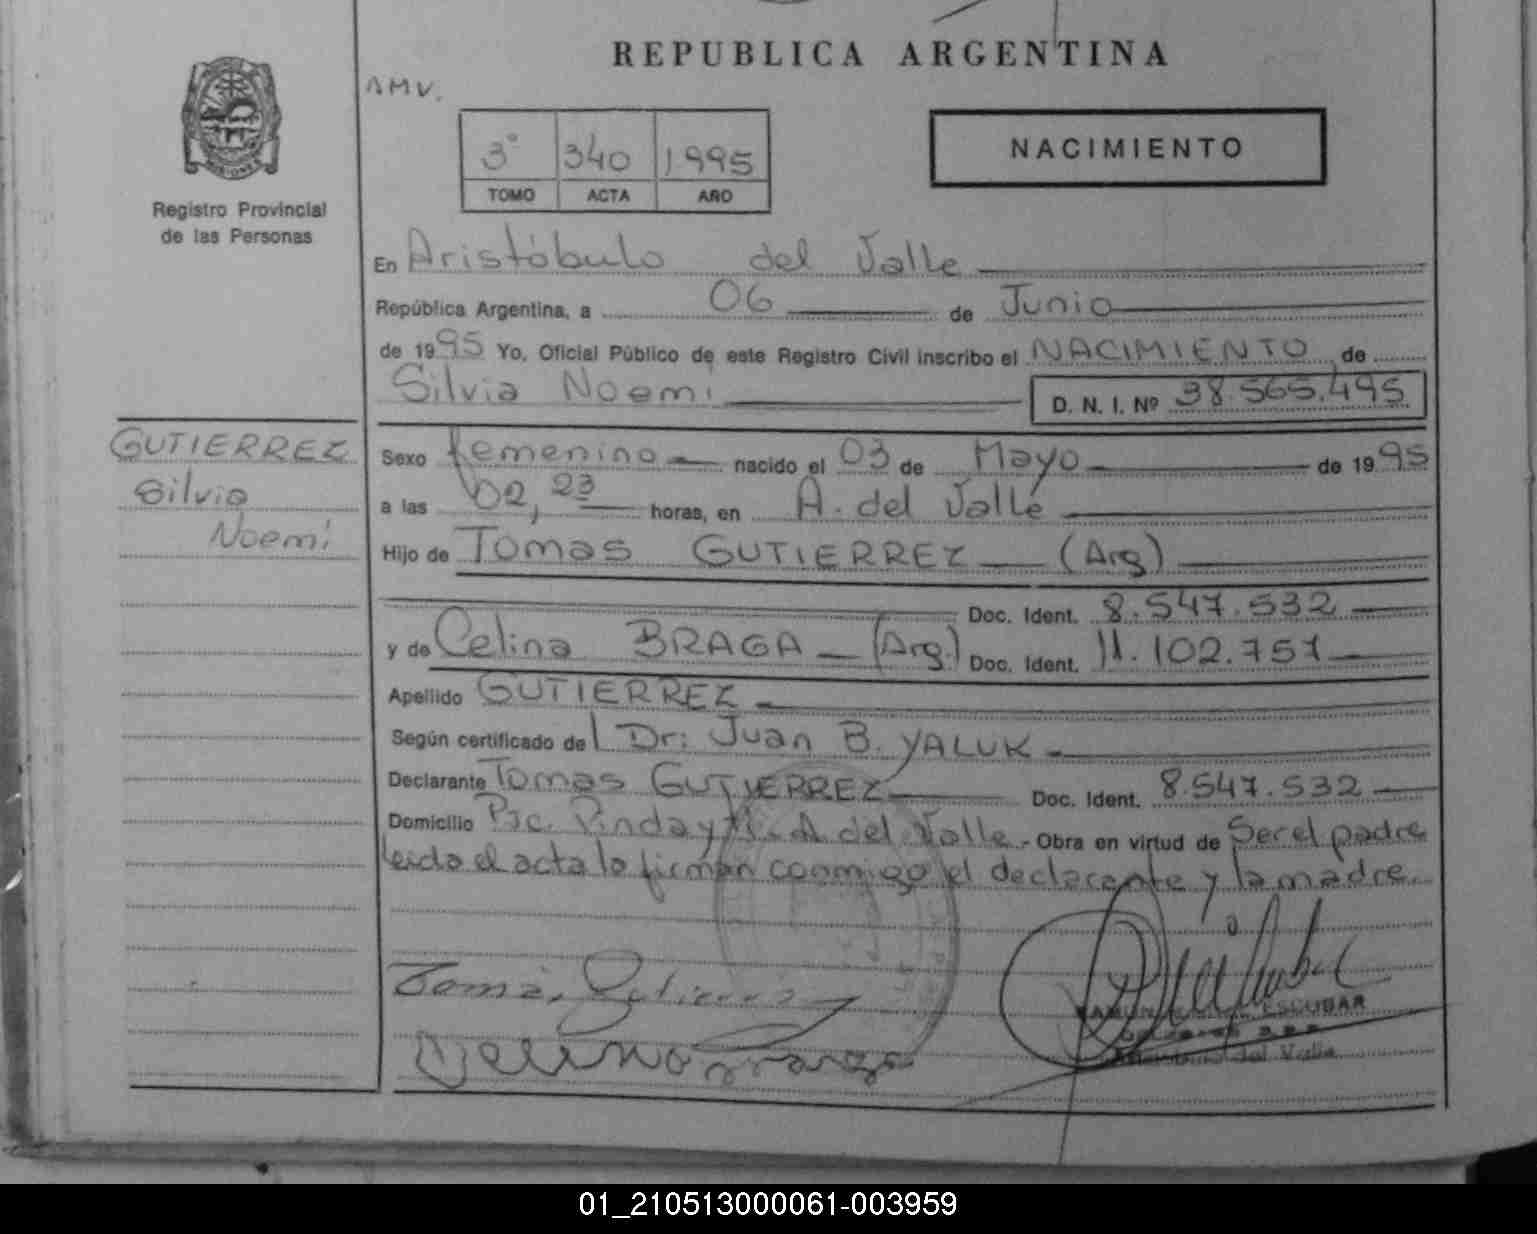 REPUBLICA ARGENTINA
AMV.
3° 340 1995
TOMO ACTA AÑO
NACIMIENTO
Registro Provincial
de las Personas
En Aristóbulo del Valle
República Argentina, a 06 de Junio
de 1995 Yo, Oficial Público de este Registro Civil inscribo el NACIMIENTO de
Silvia Noemi D. N. I. Nº 38.565.495
GUTIERREZ
Silvia
Noemi
Sexo femenino nacido el 03 de Mayo de 1995
a las 02,23 horas, en A. del Valle
Hijo de Tomas GUTIERREZ (Arg)
Doc. Ident. 8.547.532
y de Celina BRAGA (Arg.) Doc. Ident. 11.102.751
Apellido GUTIERREZ
Según certificado del Dr: Juan B. YALUK
Declarante Tomas GUTIERREZ Doc. Ident. 8.547.532
Domicilio Pje. Pindayti - A del Valle - Obra en virtud de Ser el padre
leida el acta la firman conmigo el declarante y la madre.
Tomas Gutierrez
ESCUBAR
del Valle
01_210513000061-003959